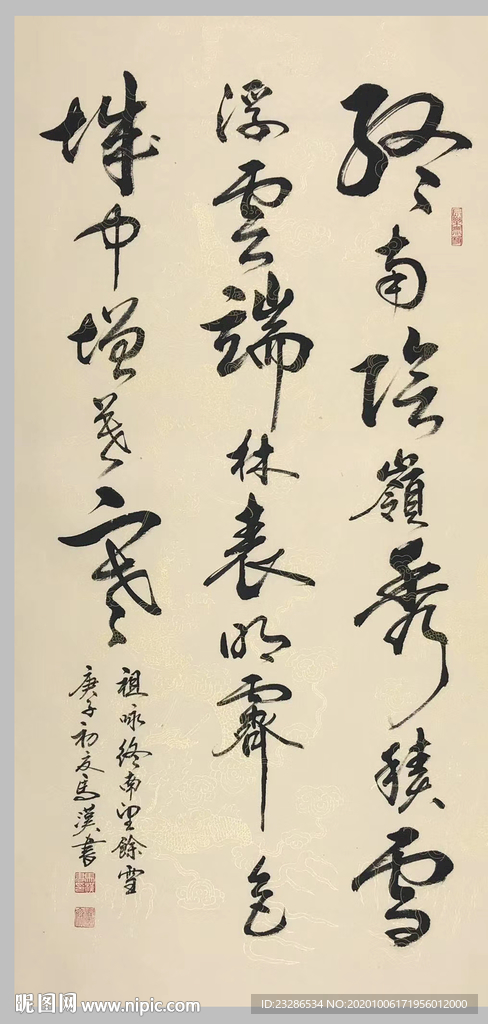 終南陰嶺秀積雪
浮雲端林表明霽色
城中增暮寒
祖咏終南望餘雪
庚子初夏馬漢書
昵图网 www.nipic.com
ID:23286534 NO:20201006171956012000